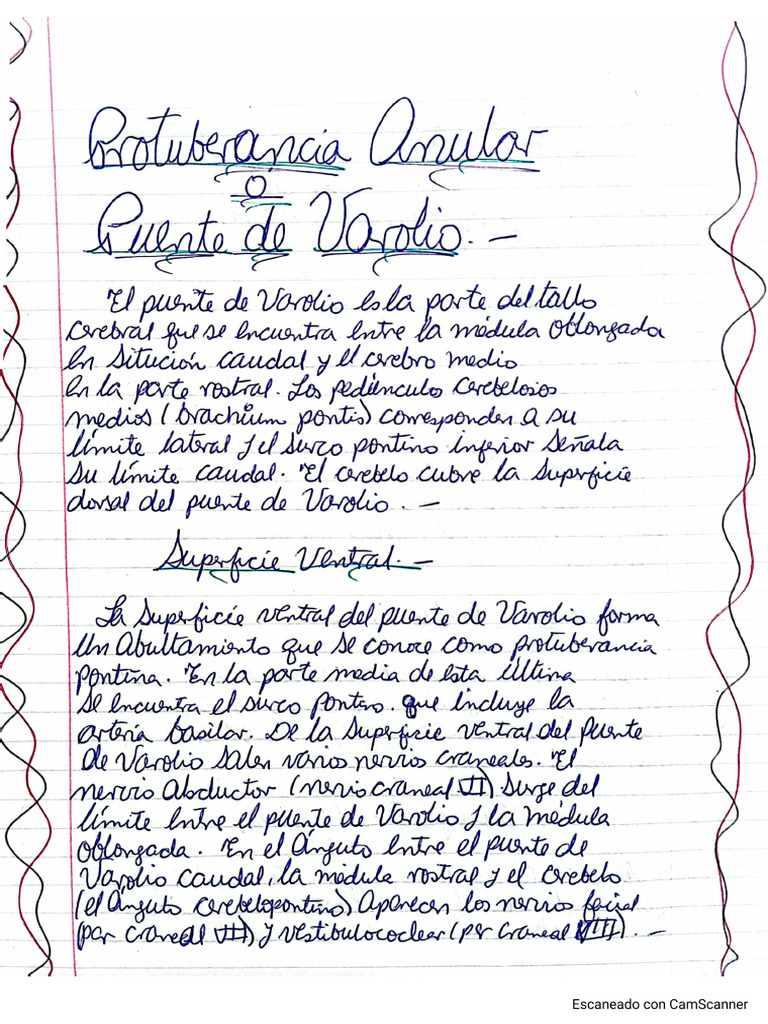 Protuberancia Anular
o
Puente de Varolio.-
El puente de Varolio es la parte del tallo
cerebral que se encuentra entre la médula oblongada
en situción caudal y el cerebro medio
en la parte rostral. Los pedúnculo cerebelosos
medios (brachium pontis) corresponden a su
límite lateral y el surco pontino inferior señala
su límite caudal. El cerebelo cubre la superficie
dorsal del puente de Varolio.-
Superficie Ventral.-
La superficie ventral del puente de Varolio forma
un abultamiento que se conoce como protuberancia
pontina. En la parte media de esta última
se encuentra el surco pontino. que incluye la
arteria basilar. De la superficie ventral del puente
de Varolio salen varios nervios craneales. El
nervio abductor (nervio craneal VI) surge del
límite entre el puente de Varolio y la médula
oblongada. En el ánguto entre el puente de
Varolio caudal, la médula rostral y el cerebelo
(el ánguto cerebelopontino) aparecen los nervio facial
(par craneal VII) y vestibulococlear (par craneal VIII).-
Escaneado con CamScanner